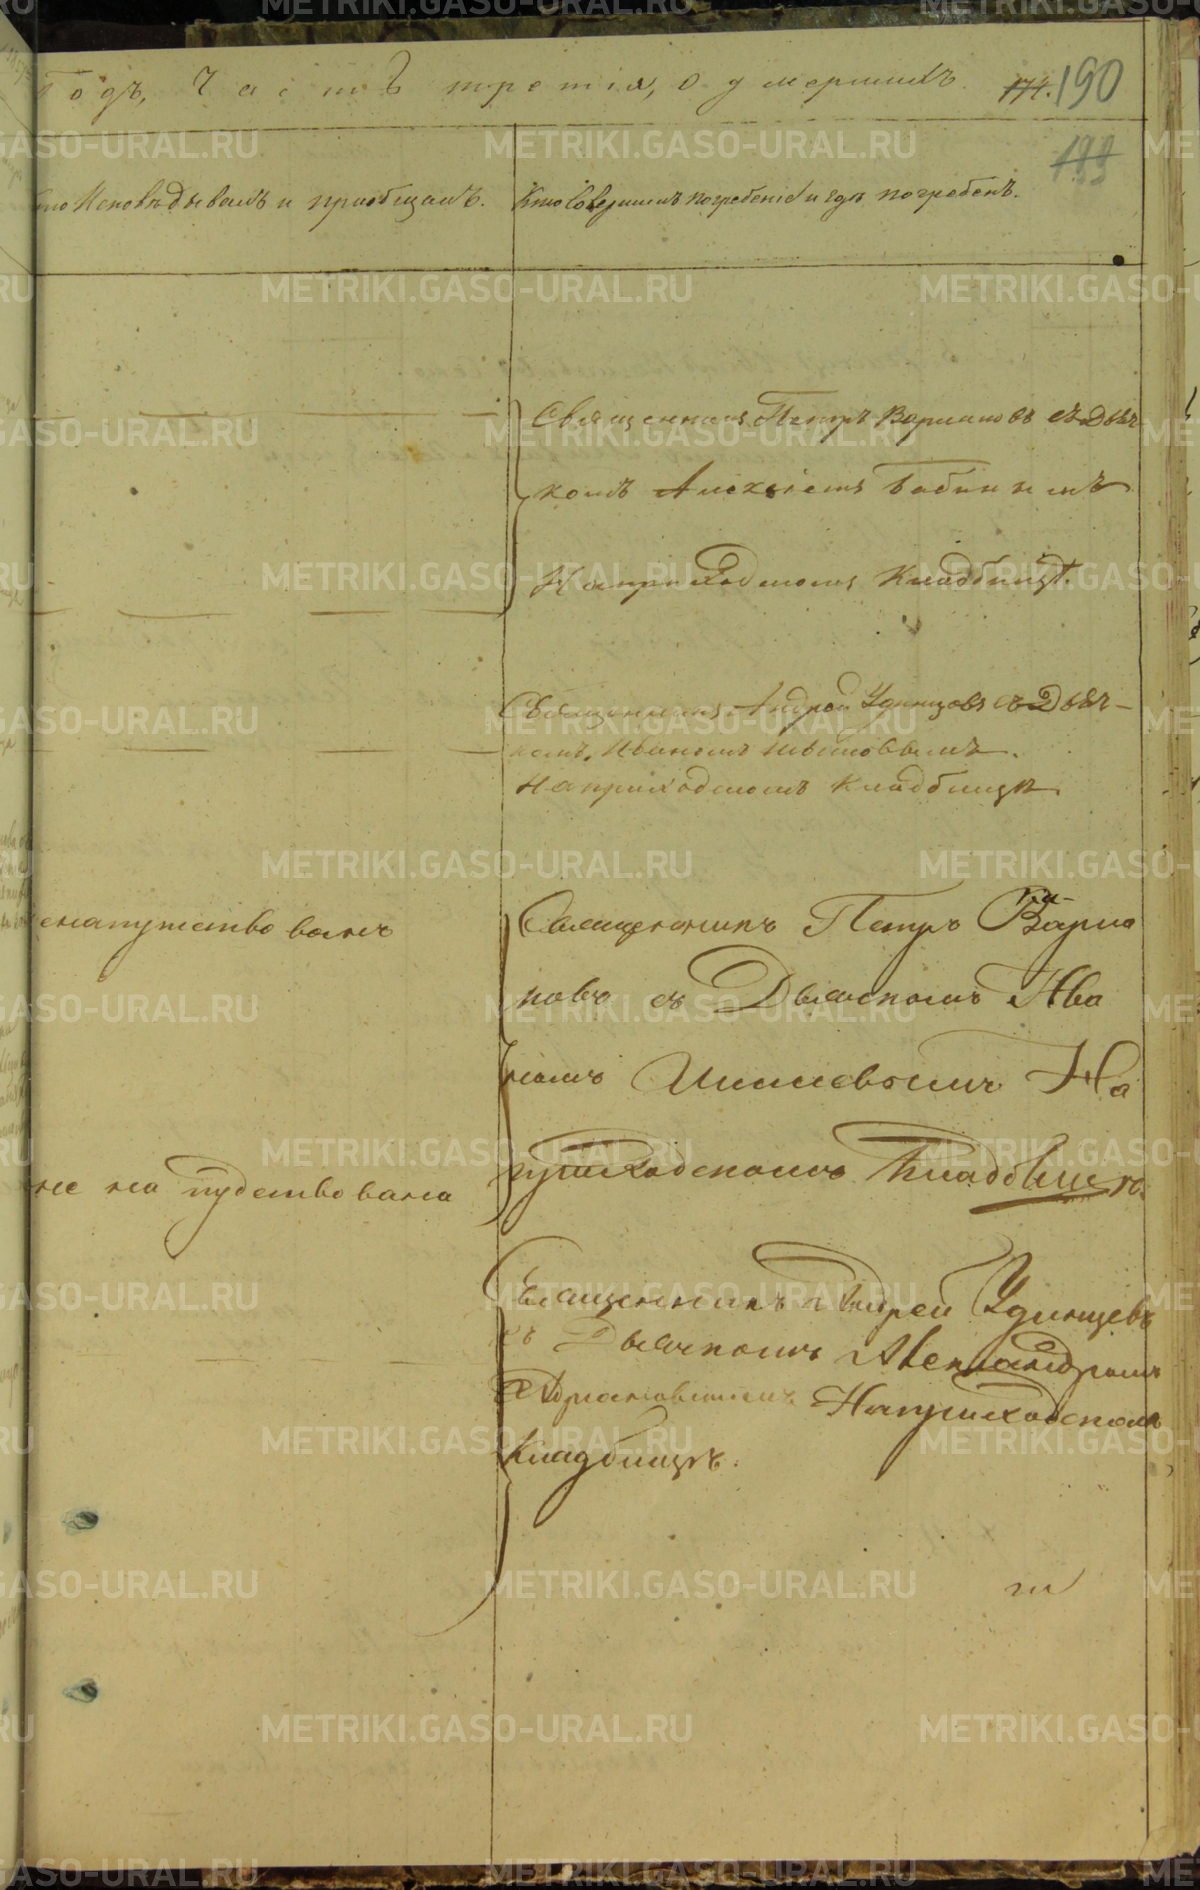 Годъ, Часть третія, о умершихъ. 174. 190
199
Кто Исповѣдывалъ и пріобщалъ. Кто Совершалъ погребеніе и гдѣ погребенъ.
Священникъ Петръ Вармановъ съ Дьяч
комъ Алексѣемъ Бабинымъ
На приходскомъ Кладбищѣ.
Священникъ Андрей Удинцовъ съ Дьяч-
комъ, Иваномъ
На приходскомъ Кладбищѣ.
ненапутствованъ
Священникъ Петръ Варма
новъ съ Дьячкомъ Ива
номъ На
приходскомъ Кладбищѣ.
не на пудствована
Священникъ Андрей Удинцевъ
съ Дьячкомъ Александромъ
Адріановымъ На приходскомъ
Кладбищѣ.
METRIKI.GASO-URAL.RU